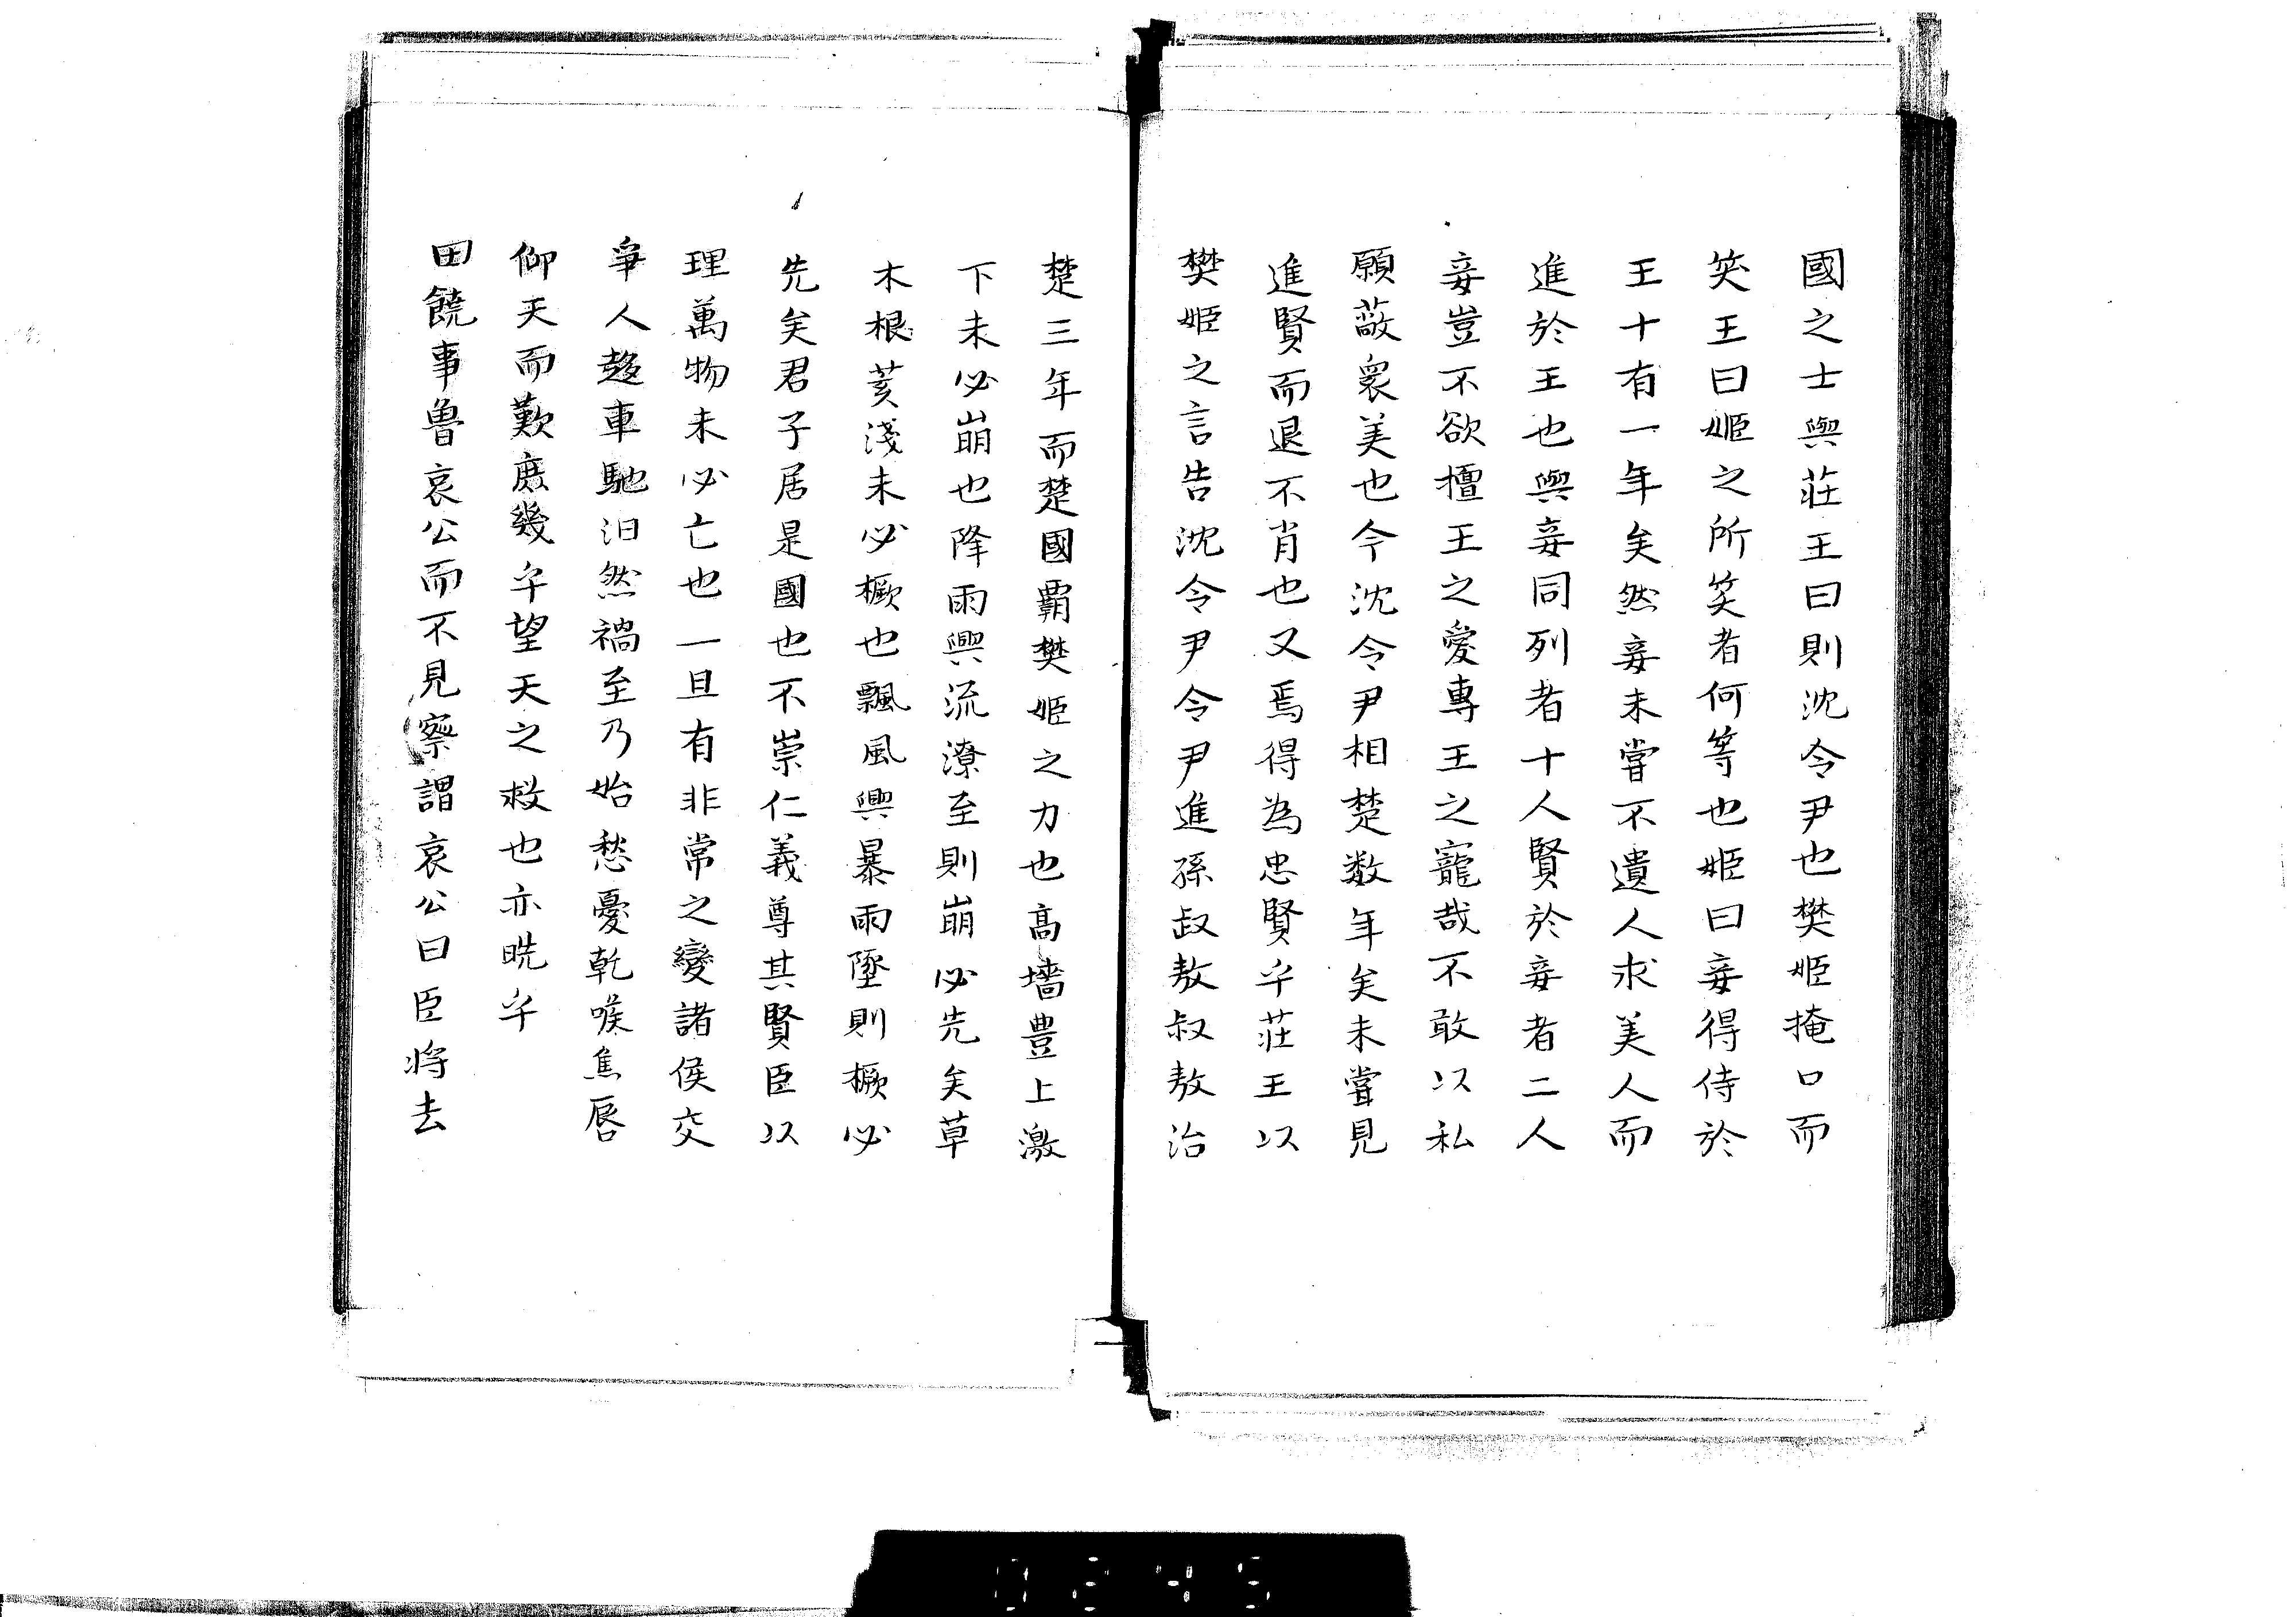 國之士與莊王曰則沈令尹也樊姬掩口而
笑王曰姬之所笑者何等也姬曰妾得侍於
王十有一年矣然妾未甞不遺人求美人而
進於王也與妾同列者十人賢於妾者二人
妾豈不欲擅王之愛專王之寵哉不敢以私
願蔽衆美也今沈令尹相楚数年矣未甞見
進賢而退不肖也又焉得為忠賢乎莊王以
樊姬之言告沈令尹令尹進孫叔敖叔敖治
楚三年而楚國霸樊姬之力也高墻豊上激
下未必崩也降雨興流潦至則崩必先矣草
木根荄淺未必橛也飄風興暴雨墜則橛必
先矣君子居是國也不崇仁義尊其賢臣以
理萬物未必亡也一旦有非常之變諸侯交
爭人趍車馳汨然禍至乃始愁憂乾喉焦唇
仰天而歎庶幾乎望天之救也亦晩乎
田饒事魯哀公而不見察謂哀公曰臣将去